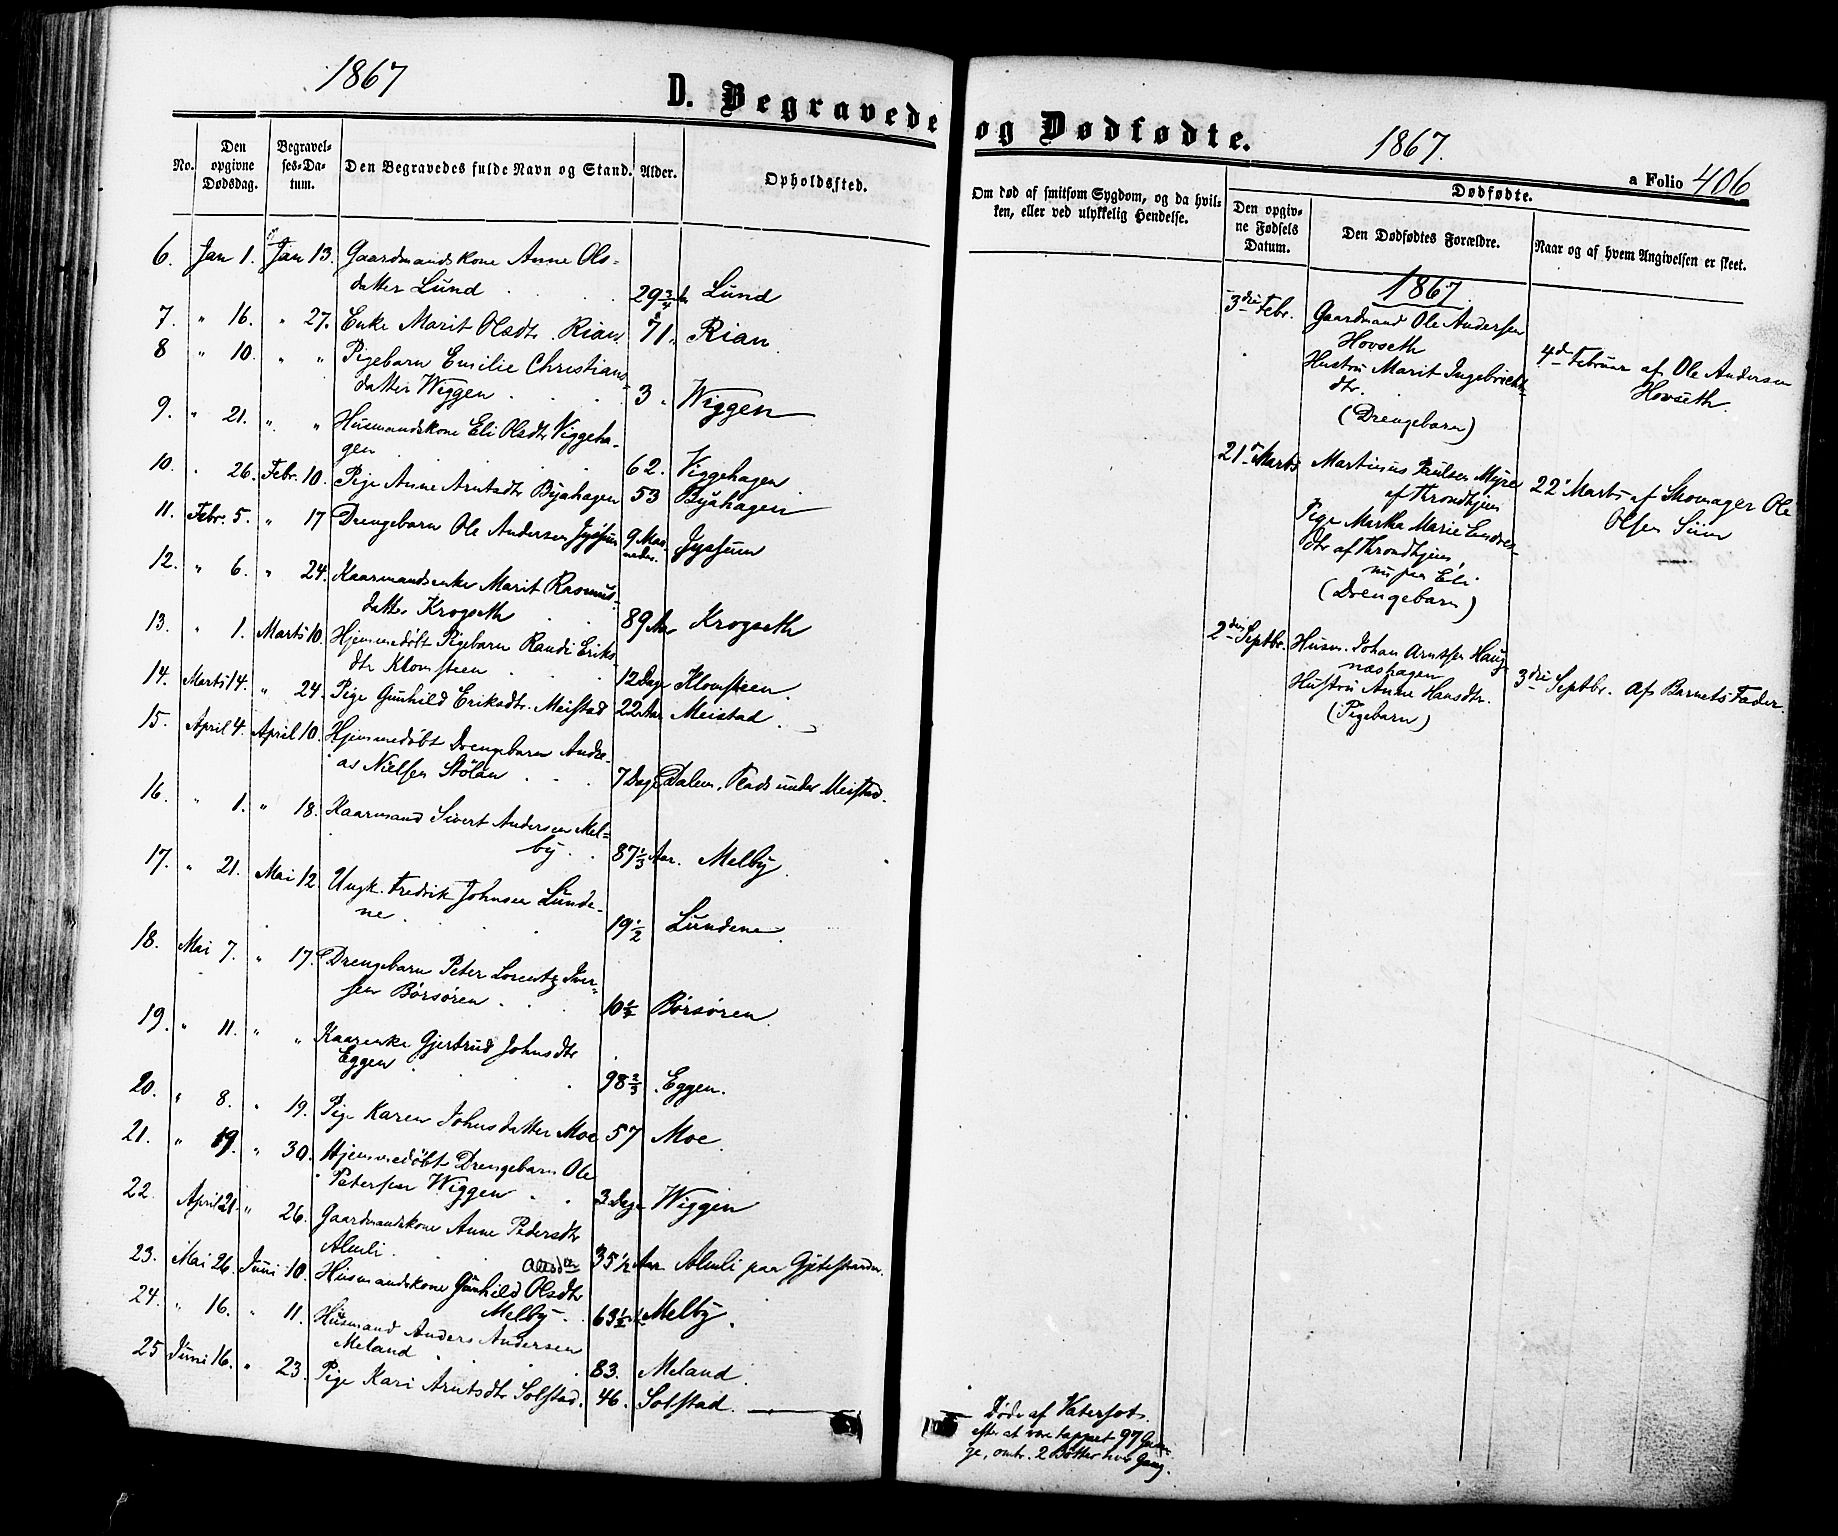 1867
D. Begravede
No.
Den opgivne Dødsdag.
Begravel-ses-Da-tum.
Den Begravedes fulde Navn og Stand.
Alder.
Opholdssted.
6. Jan 1. Jan 13. Gaardmandskone Anne Ols-
datter Lund 29 3/4 Lund
7. " 16. " 27. Enke Marit Olsdtr Rian 71 Rian
8 " 10. " " Pigebarn Emilie Christians-
datter Wiggen 3. Wiggen
9. " 21. " " Husmandskone Eli Olsdtr Viggeha-
gen 62. Viggehagen
10. " 26. Febr. 10. Pige Anne Arntsdtr Byahagen 53 Byahagen
11. Febr. 5. " 17 Drengebarn Ole Andersen Jyssum 9 Maa-
neder. Jyssum
12. " 6. " 24. Kaarmandsenke Marit Rasmus-
datter Krogseth 89 Aar Krogseth
13. " 1. Marts 10. Hjemmedøbt Pigebarn Randi Eriks-
dtr Klomsteen 12 Dage Klomsteen.
14. Marts 14. " 24. Pige Gunhild Eriksdtr. Meistad 22 Aar Meistad
15. April 4. April 10. Hjemmedøbt Drengebarn Andre-
as Nielsen Stölan 7 Dage Dalen, Plads under Meistad.
16. " 1. " 18. Kaarmand Sivert Andersen Mel-
by. 87 1/3 Aar. Melby.
17. " 21. Mai 12. Ungk. Fredrik Johnsen Lunde-
ne 19 1/2 Lundene
18. Mai 7. " 17. Drengebarn Peter Lorentz Iver-
sen Börsören 10 1/2 Börsören.
19. " 11. " " Kaarenke Gjertrud Johnsdtr
Eggen 98 2/3 Eggen.
20. " 8. " 19. Pige Karen Johnsdatter Moe 57 Moe
21. " 19. " 30. Hjemmedøbt Drengebarn Ole
Petersen Wiggen 3 Dage Wiggen
22. April 21. " 26. Gaardmandskone Anne Pedersdtr
Almli. 35 1/2 Aar Almli paa Gjetestranden.
23. Mai 26. Juni 10. Husmandskone Gunhild Olsdtr
Melby. 63 1/2 Melby.
24. " 16. " 11. Husmand Anders Andersen
Meland 83. Meland
25 Juni 16. " 23. Pige Kari Arntsdtr Solstad. 46. Solstad.
og Dødfødte.
1867.
a Folio 406
Om død af smitsom Sygdom, og da hvil-
ken, eller ved ulykkelig Hendelse.
Dødfødte.
Den opgiv-
ne Fødsels
Datum.
Den Dødfødtes Forældre.
Naar og af hvem Angivelsen er skeet.
1867.
3die Febr. Gaardmand Ole Andersen
Hovseth
Hustru Marit Ingebrichts-
dtr.
(Drengebarn)
4de Februar af Ole Andersen
Hovseth.
21de Marts Martinus Paulsen Myre
af Throndhjem
Pige Martha Marie Endres-
dtr af Throndhjem,
nu paa Eli
(Drengebarn)
22 Marts af Skomager Ole
Olsen
2den Septbr. Husm. Johan Arntsen Haug-
nashagen
Hustru Anne Hansdtr.
(Pigebarn)
3die Septbr. af Barnets Fader.
Döde af Vatersot
efter at være tappet 97 Gan-
ge, omtr. 2 Bötter hver Gang.